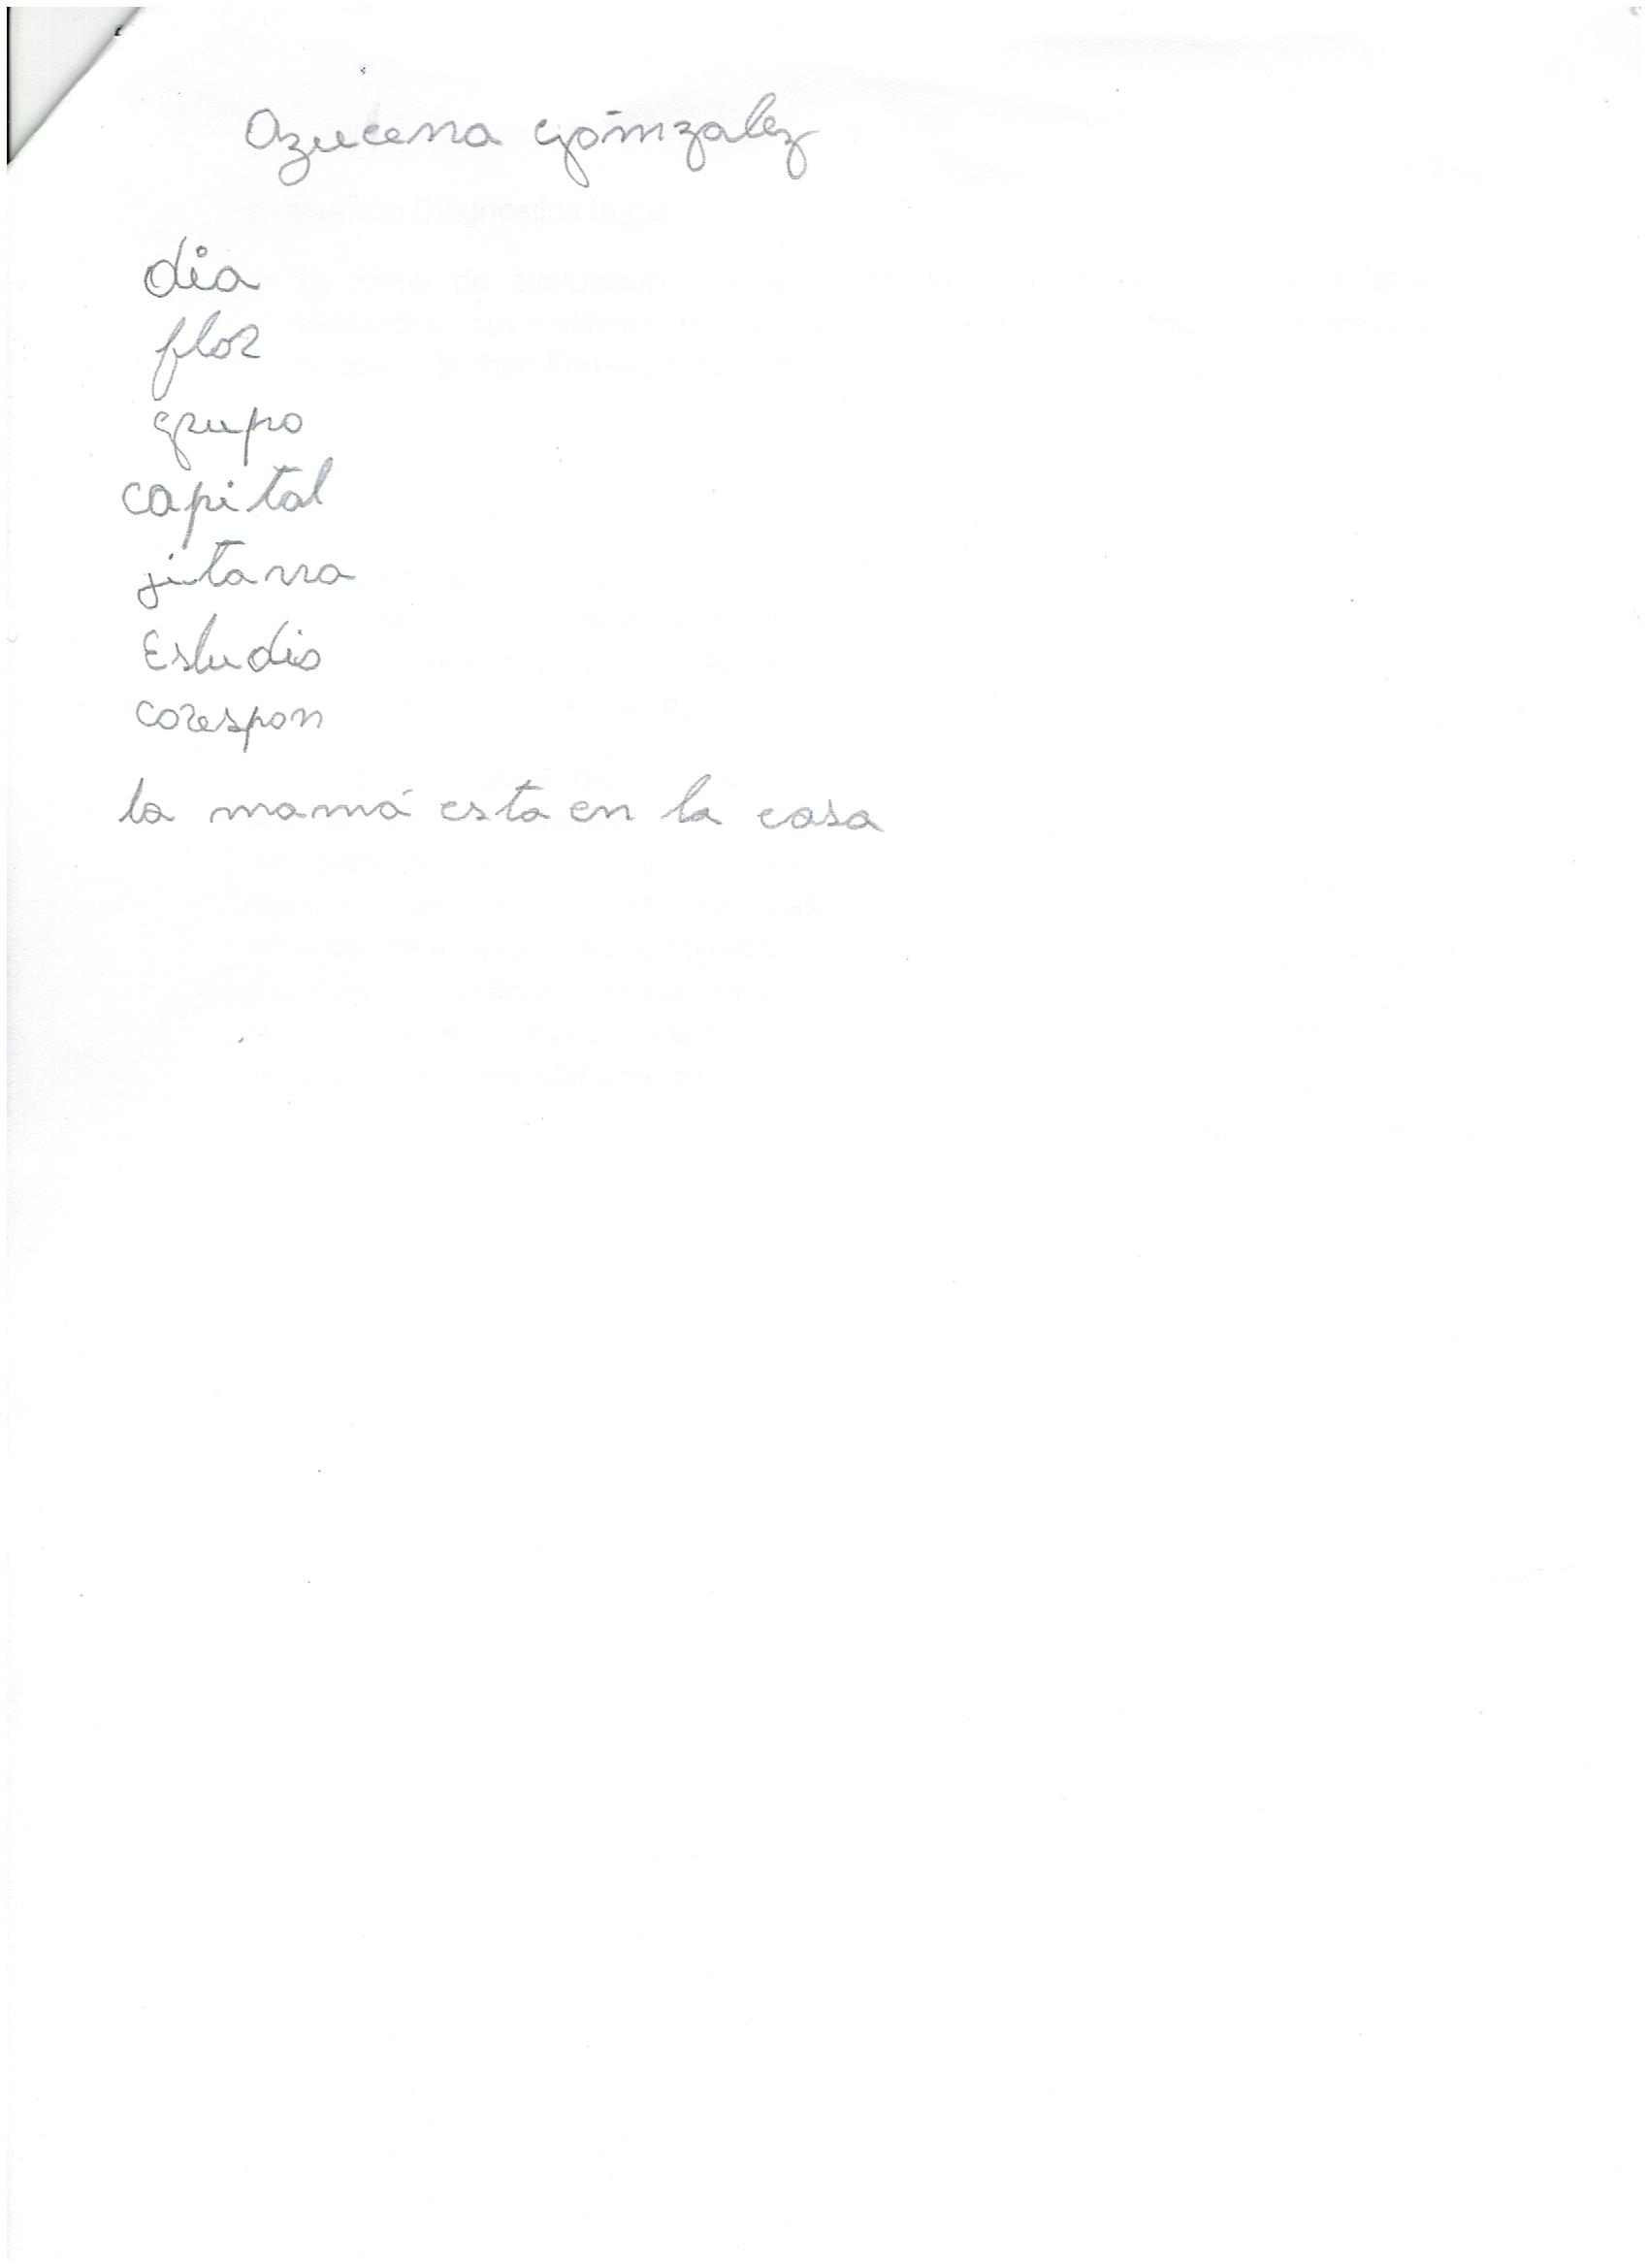 Azucena gómzalez
dia
flor
grupo
capital
jitarra
Estudio
corespon
la mamá esta en la casa